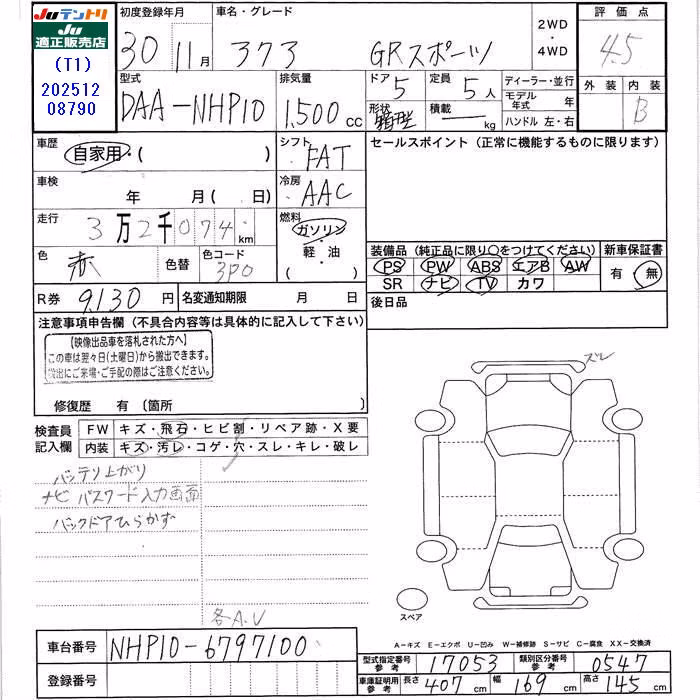 Juテントリ
Ju
適正販売店
(T1)
202512
08790
初度登録年月
30 11月
車名・グレード
アクア GRスポーツ
2WD
・
4WD
評価点
4.5
外装 内装
B
型式
DAA-NHP10
排気量
1,500cc
ドア
5
形状
箱型
定員
5人
積載
kg
ディーラー・並行
モデル年式 年
ハンドル 左・右
車歴
自家用・( )
シフト
FAT
セールスポイント(正常に機能するものに限ります)
車検
年 月( 日)
冷房
AAC
走行
3万2千074km
燃料
ガソリン
・
軽・油
( )
色
赤
色替
色コード
3P0
装備品(純正品に限り○をつけてください)
PS PW ABS エアB AW
SR ナビ TV カワ
新車保証書
有 無
R券 9,130円
名変通知期限 月 日
後日品
注意事項申告欄(不具合内容等は具体的に記入して下さい)
【映像出品車を落札された方へ】
この車は翌々日(土曜日)から搬出できます。
搬出にご来場・ご手配の際はご注意ください。
修復歴 有(箇所 )
検査員
記入欄
FW キズ・飛石・ヒビ割・リペア跡・X要
内装 キズ・汚レ・コゲ・穴・スレ・キレ・破レ
バッテリ上がり
ナビ パスワード入力画面
バックドアひらかず
各A.U
スレ
スペア
A-キズ E-エクボ U-凹み W-補修跡 S-サビ C-腐食 XX-交換済
車台番号 NHP10-6797100
登録番号
型式指定番号参考 17053
類別区分番号参考 0547
車庫証明用参考 長さ 407cm 幅 169cm 高さ 145cm